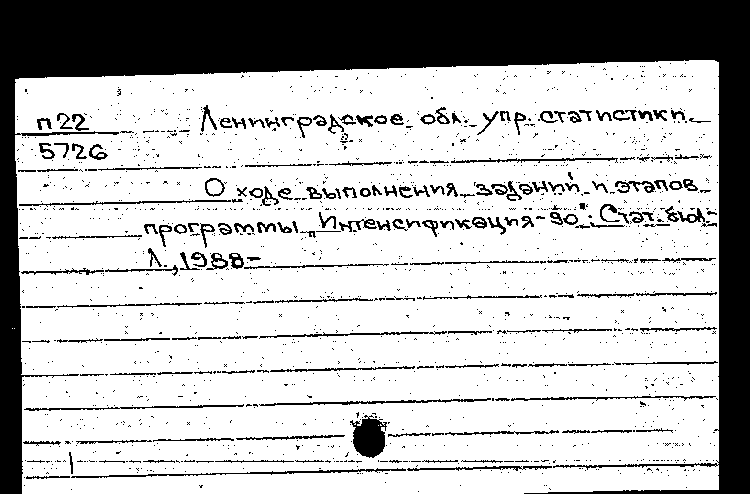 п22
5726
Ленинградское обл. упр. статистики.
О ходе выполнения заданий и этапов
программы „Интенсификация-90": Стат. бюл.-
Л., 1988-